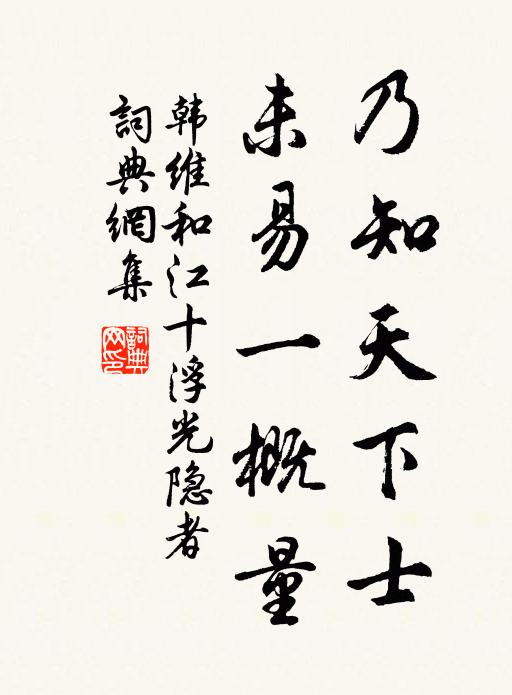 乃知天下士
未易一概量
韩维和江十浮光隐者
詞典網集
詞典网印